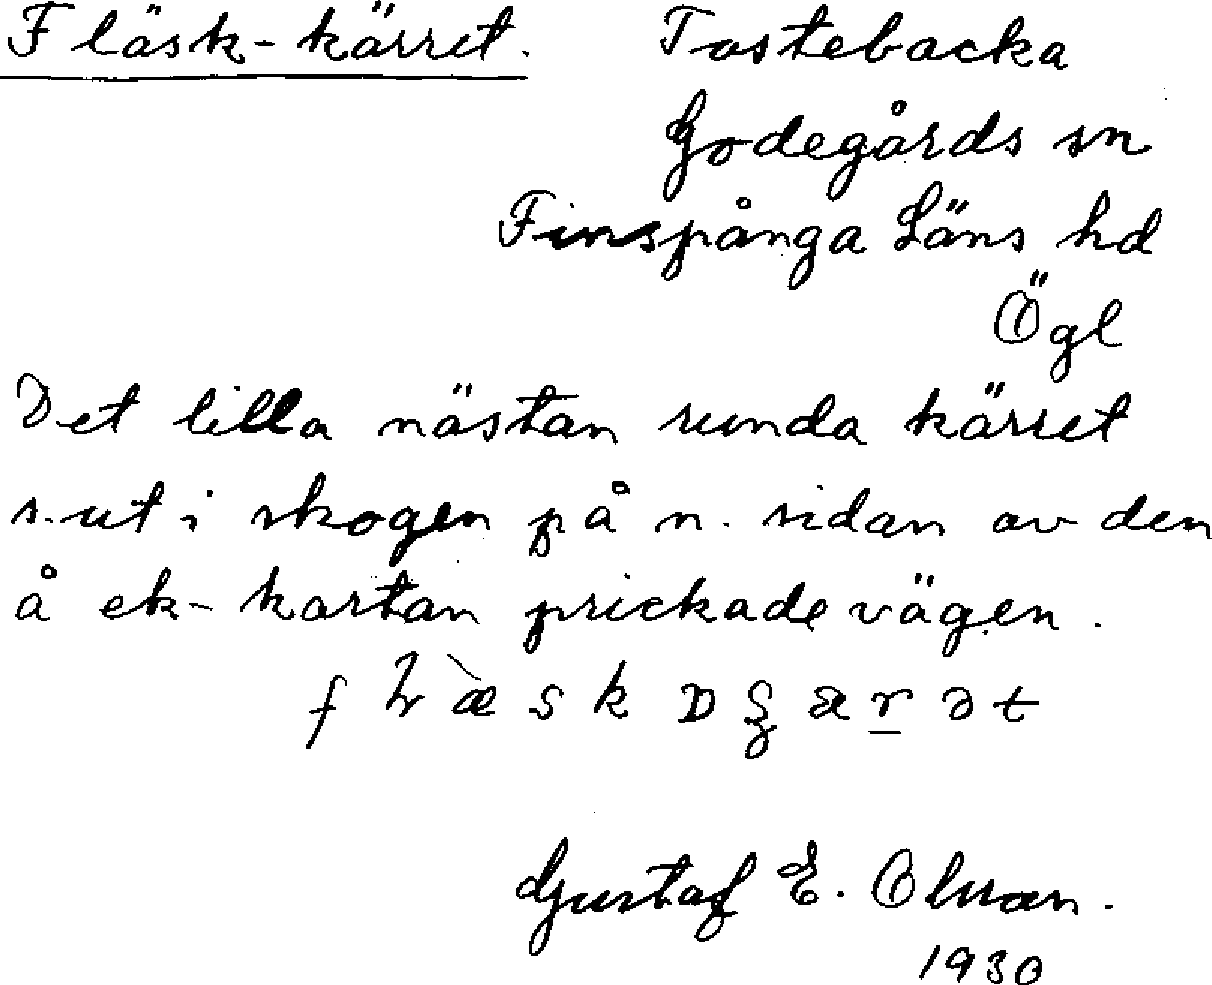 Fläsk-kärret. Tostebacka
Godegårds sn
Finspånga Läns hd
Ögl
Det lilla nästan runda kärret
s.ut i skogen på n. sidan av den
å ek-kartan prickade vägen.
Gustaf E. Olsson.
1930